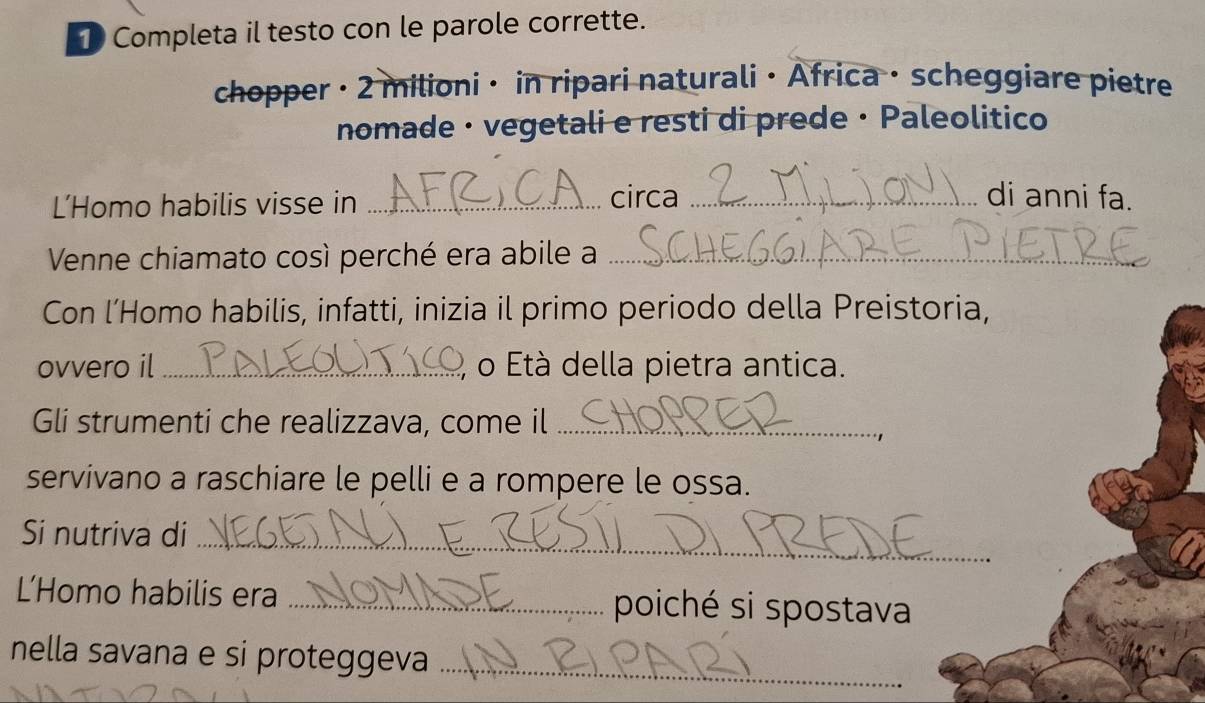 1 Completa il testo con le parole corrette.
chopper • 2 milioni • in ripari naturali • Africa • scheggiare pietre
nomade • vegetali e resti di prede • Paleolitico
L'Homo habilis visse in AFRICA circa 2 MILIONI di anni fa.
Venne chiamato così perché era abile a SCHEGGIARE PIETRE
Con l'Homo habilis, infatti, inizia il primo periodo della Preistoria,
ovvero il PALEOLITICO, o Età della pietra antica.
Gli strumenti che realizzava, come il CHOPPER,
servivano a raschiare le pelli e a rompere le ossa.
Si nutriva di VEGETALI E RESTI DI PREDE.
L'Homo habilis era NOMADE poiché si spostava
nella savana e si proteggeva IN RIPARI.